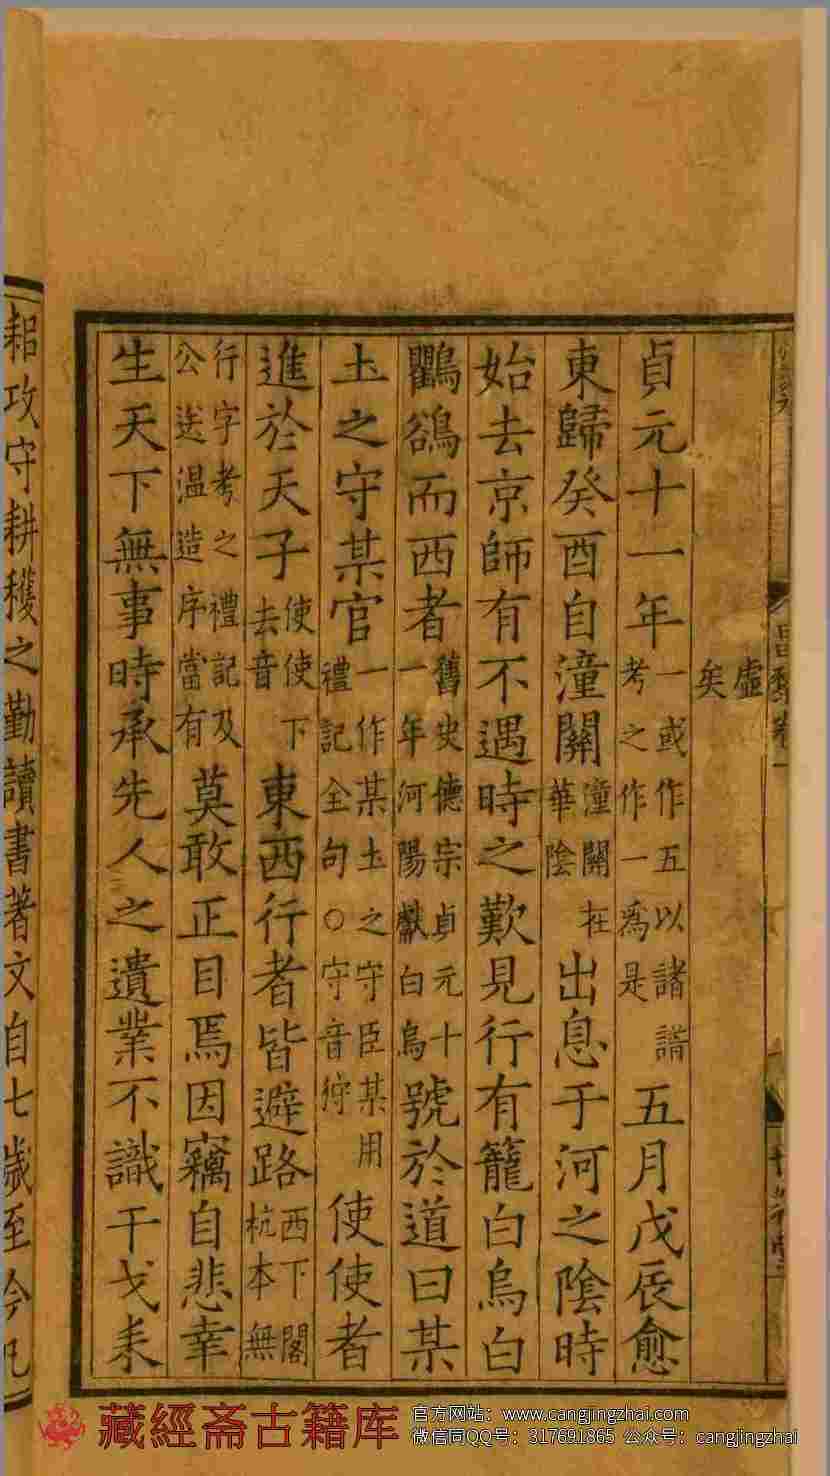 昌黎卷一
虛
矣
貞元十一年一或作五以諸譜考之作一爲是五月戊辰愈
東歸癸酉自潼關潼關在華陰出息于河之陰時
始去京師有不遇時之歎見行有籠白烏白
鸜鵒而西者舊史德宗貞元十一年河陽獻白烏號於道曰某
土之守某官一作某土之守臣某用禮記全句○守音狩使使者
進於天子使使下去音東西行者皆避路西下閣杭本無
行字考之禮記及公送温造序當有莫敢正目焉因竊自悲幸
生天下無事時承先人之遺業不識干戈耒
耜攻守耕穫之勤讀書著文自七歲至今凡
藏經斋古籍库
官方网站：www.cangjingzhai.com
微信同QQ号：317691865 公众号：cangjingzhai